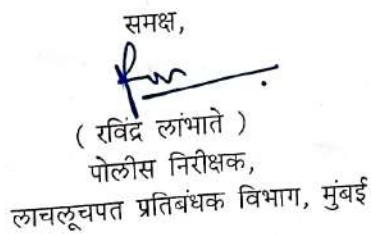 समक्ष,
( रविंद्र लांभाते )
पोलीस निरीक्षक,
लाचलूचपत प्रतिबंधक विभाग, मुंबई